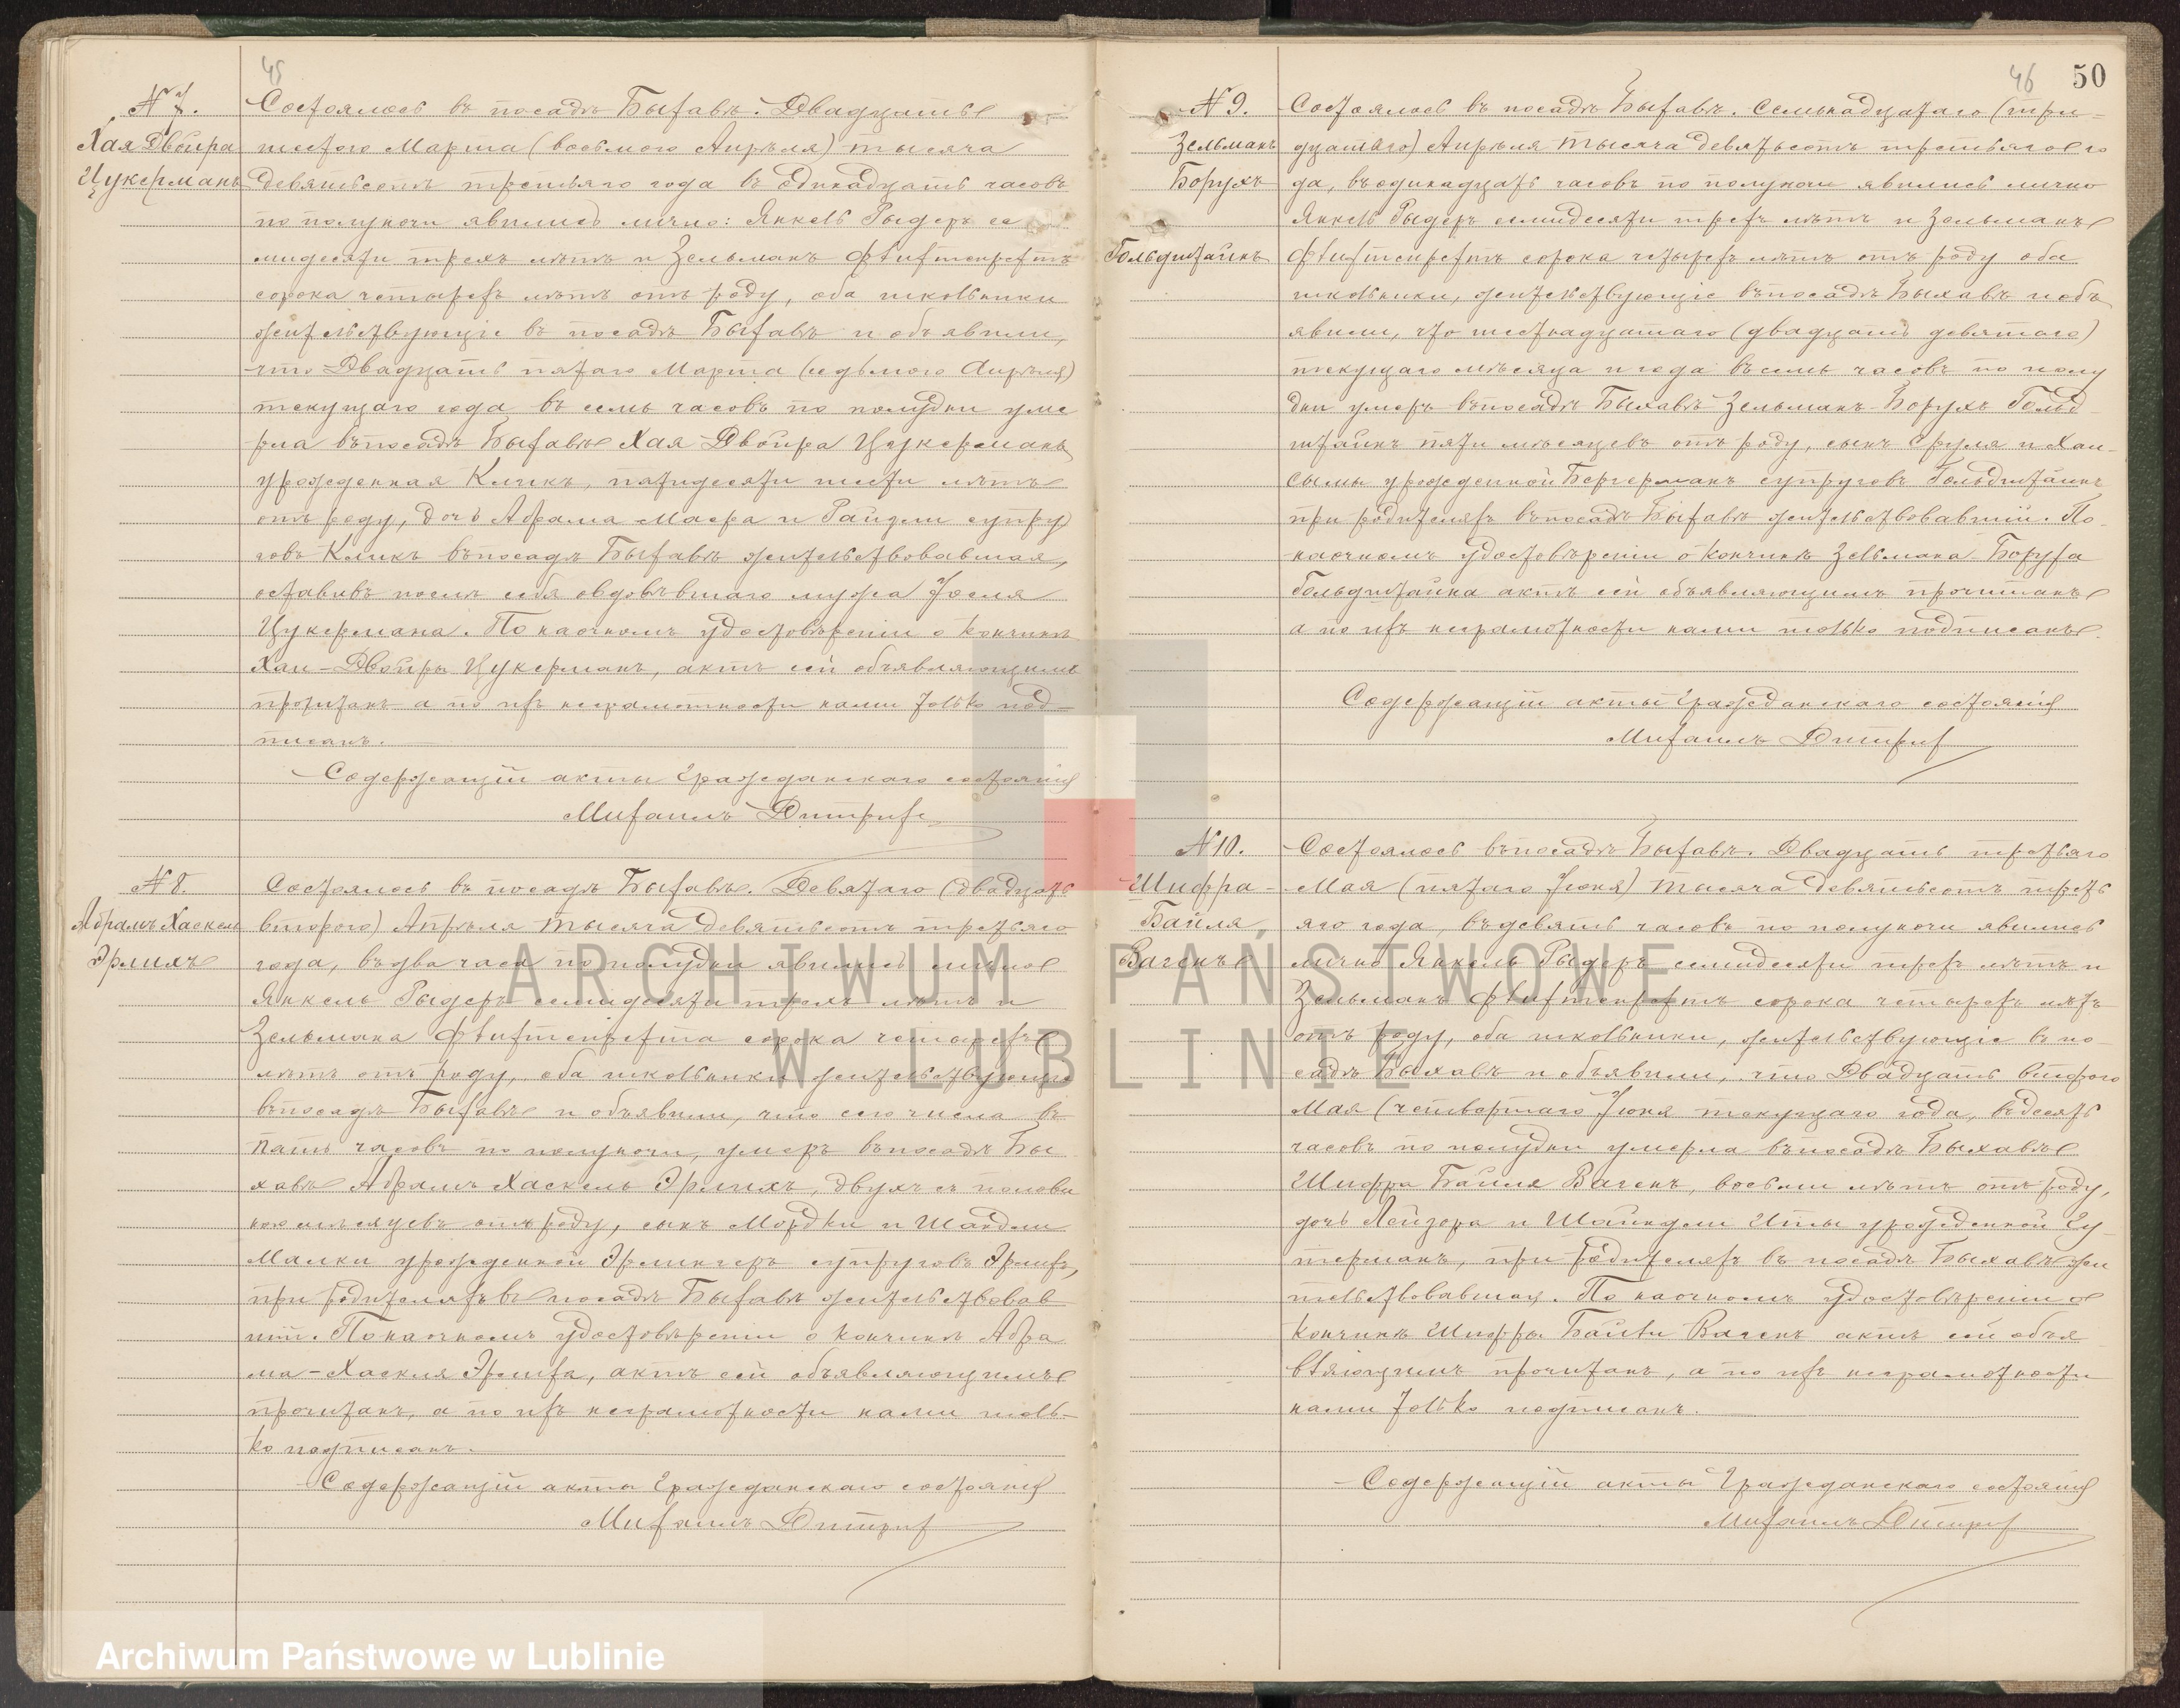 45
№ 7.
Хая Двойра
Цукерманъ
Состоялось въ посадѣ Быхавѣ. Двадцать
шестого Марта (восьмого Апрѣля) тысяча
девятьсотъ третьяго года въ одинадцать часовъ
по полуночи явились лично: Янкель Рыдеръ се
мидесяти трехъ лѣтъ и Зельманъ
сорока четырехъ лѣтъ отъ роду, оба школьники
жительствующіе въ посадѣ Быхавѣ и объявили,
что Двадцать пятаго Марта (седьмого Апрѣля)
текущаго года въ семь часовъ по полудни уме
рла въ посадѣ Быхавѣ Хая Двойра Цукерманъ
урожденная Кликъ, пятидесяти шести лѣтъ
отъ роду, дочь Абрама Маера и Райзли супру
говъ Кликъ въ посадѣ Быхавѣ жительствовавшая,
оставивъ послѣ себя овдовѣвшаго мужа Іосля
Цукермана. По наочномъ удостовѣреніи о кончинѣ
Хаи-Двойры Цукерманъ, актъ сей объявляющимъ
прочитанъ а по ихъ неграмотности нами только под-
писанъ.
Содержащій акты Гражданскаго состоянія
Михаилъ Дитрихъ
№ 8.
Абрамъ Хаскель
Эрлихъ
Состоялось въ посадѣ Быхавѣ. Девятаго (двадцать
второго) Апрѣля тысяча девятьсотъ третьяго
года, въ два часа по полудни явились лично
Янкель Рыдеръ семидесяти трехъ лѣтъ и
Зельмана сорока четырехъ
лѣтъ отъ роду, оба школьники жительствующіе
въ посадѣ Быхавѣ и объявили, что сего числа въ
пять часовъ по полуночи, умеръ въ посадѣ Бы
хавѣ Абрамъ Хаскель Эрлихъ, двухъ съ полови
ною мѣсяцевъ отъ роду, сынъ Мордки и Шандли
Малки урожденной Эрлихсеръ супруговъ Эрлихъ,
при родителяхъ въ посадѣ Быхавѣ жительствовав
шій. По наочномъ удостовѣреніи о кончинѣ Абра
ма-Хаскля Эрлиха, актъ сей объявляющимъ
прочитанъ, а по ихъ неграмотности нами толь-
ко подписанъ.
Содержащій акты Гражданскаго состоянія
Михаилъ Дитрихъ
46 50
№ 9.
Зельманъ
Борухъ
Гольдштайнъ
Состоялось въ посадѣ Быхавѣ. Семнадцатаго (три-
дцатаго) Апрѣля тысяча девятьсотъ третьяго го
да, въ одинадцать часовъ по полуночи явились лично
Янкель Рыдеръ семидесяти трехъ лѣтъ и Зельманъ
сорока четырехъ лѣтъ отъ роду оба
школьники, жительствующіе въ посадѣ Быхавѣ и объ
явили, что шестнадцатаго (двадцать девятаго)
текущаго мѣсяца и года въ семь часовъ по полу
дни умеръ въ посадѣ Быхавѣ Зельманъ-Борухъ Гольд-
штайнъ пяти мѣсяцевъ отъ роду, сынъ Сруля и Хаи-
Сымы урожденной Бергерманъ супруговъ Гольдштайнъ
при родителяхъ въ посадѣ Быхавѣ жительствовавшій. По-
наочномъ удостовѣреніи о кончинѣ Зельмана-Боруха
Гольдштайна актъ сей объявляющимъ прочитанъ
а по ихъ неграмотности нами только подписанъ.
Содержащій акты Гражданскаго состоянія
Михаилъ Дитрихъ
№ 10.
Шифра-
Байля,
Вагенъ
Состоялось въ посадѣ Быхавѣ. Двадцать третьяго
Мая (пятаго Іюня) тысяча девятьсотъ треть
яго года, въ девять часовъ по полуночи явились
лично Янкель Рыдеръ семидесяти трехъ лѣтъ и
Зельманъ сорока четырехъ лѣтъ
отъ роду, оба школьники, жительствующіе въ по-
садѣ Быхавѣ и объявили, что Двадцать второго
Мая (четвертаго Іюня текущаго года, въ десять
часовъ по полудни умерла въ посадѣ Быхавѣ
Шифра Байля Вагенъ, восьми лѣтъ отъ роду,
дочь Лейзора и Шайндли Иты урожденной Гу-
терманъ, при родителяхъ въ посадѣ Быхавѣ жи
тельствовавшая. По наочномъ удостовѣреніи о
кончинѣ Шифры Байли Вагенъ актъ сей объя
вляющимъ прочитанъ, а по ихъ неграмотности
нами только подписанъ.
Содержащій акты Гражданскаго состоянія
Михаилъ Дитрихъ
ARCHIWUM PAŃSTWOWE
W LUBLINIE
Archiwum Państwowe w Lublinie